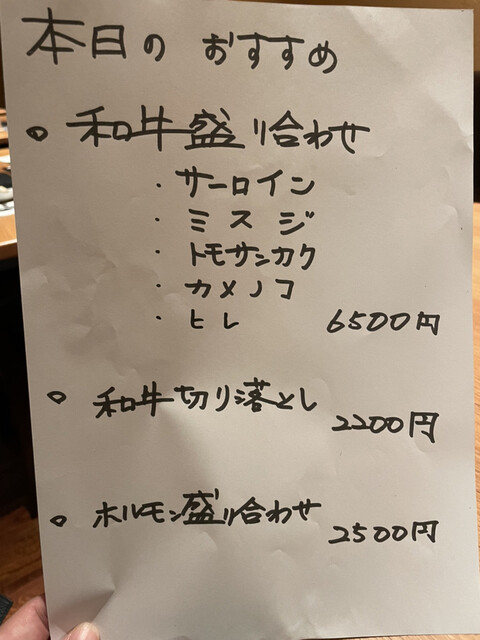 本日の おすすめ
○ 和牛盛り合わせ
・サーロイン
・ミスジ
・トモサンカク
・カメノコ
・ヒレ 6500円
○ 和牛切り落とし 2200円
○ ホルモン盛り合わせ 2500円